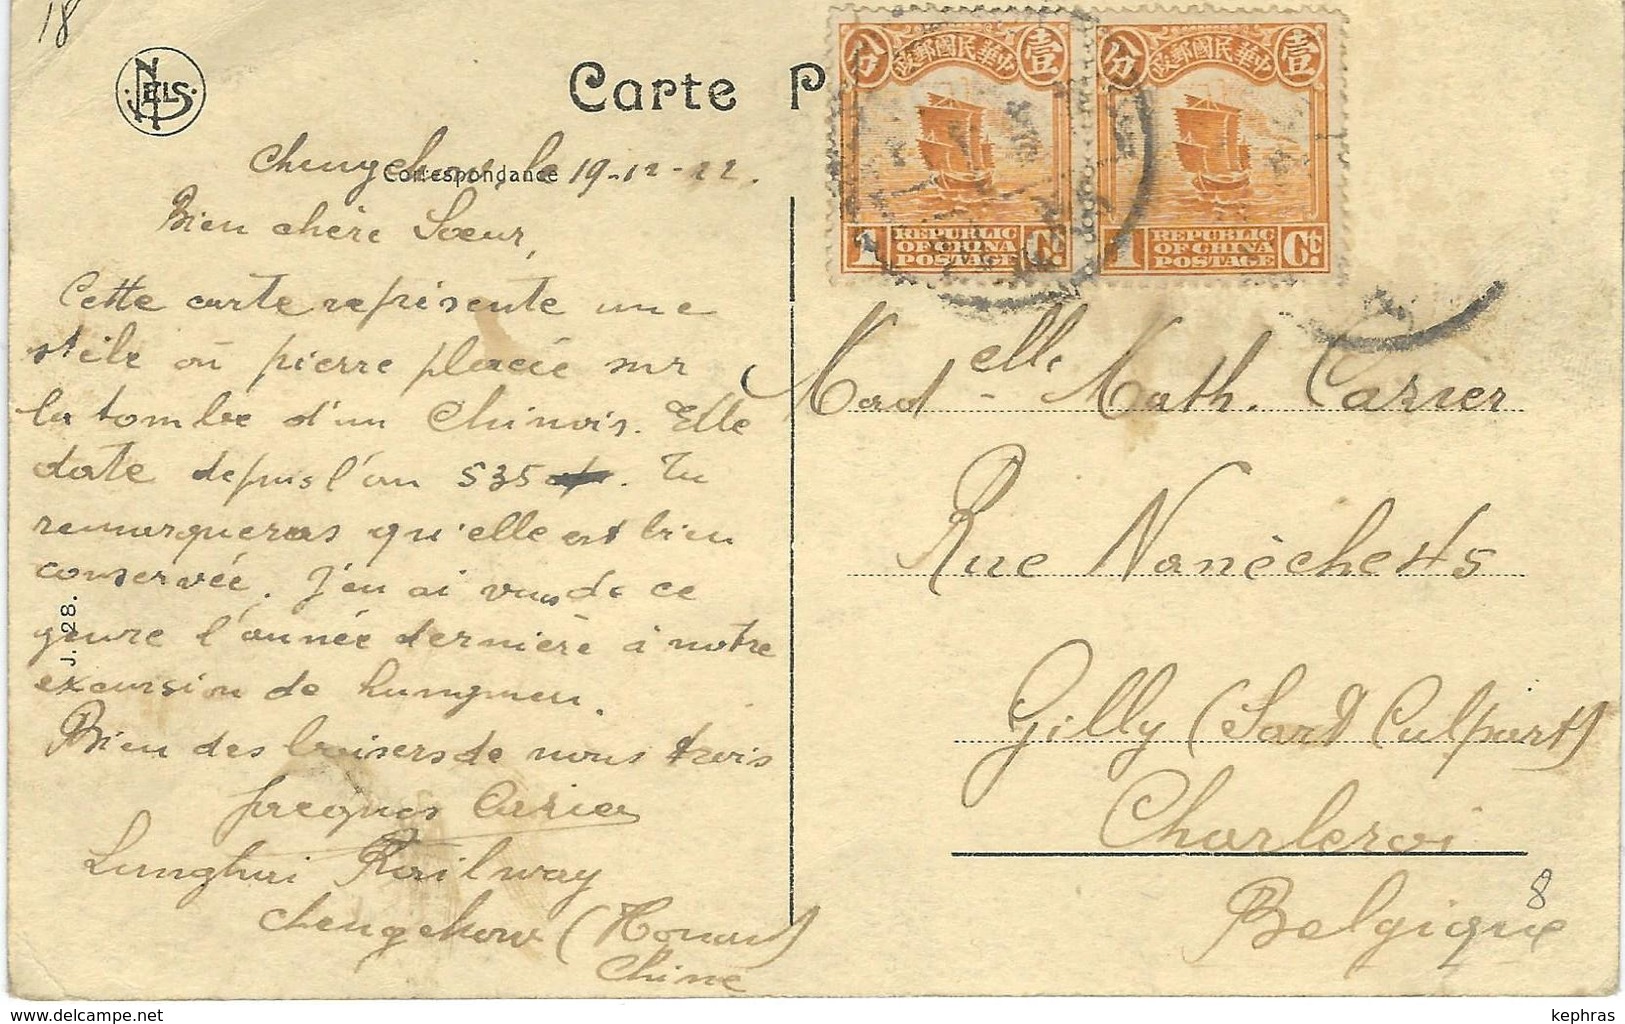 18
NELS
Carte P
Correspondance
Chengchow, le 19-12-22.
Bien chère Soeur,
Cette carte représente une
stèle ou pierre placée sur
la tombe d'un Chinois. Elle
date depuis l'an 535. Tu
remarqueras qu'elle est bien
conservée. J'en ai vu de ce
genre l'année dernière à notre
excursion de Lungmen.
Bien des baisers de nous trois
Jacques Carier
Lunghai Railway
Chengchow (Honan)
Chine
J. 28.
分 政郵國民華中 壹
1 REPUBLIC OF CHINA POSTAGE Ct.
分 政郵國民華中 壹
1 REPUBLIC OF CHINA POSTAGE Ct.
Mad elle - Math. Carier
Rue
Gilly (Sart Culpart)
Charleroi
Belgique
8
delcampe.net
kephras